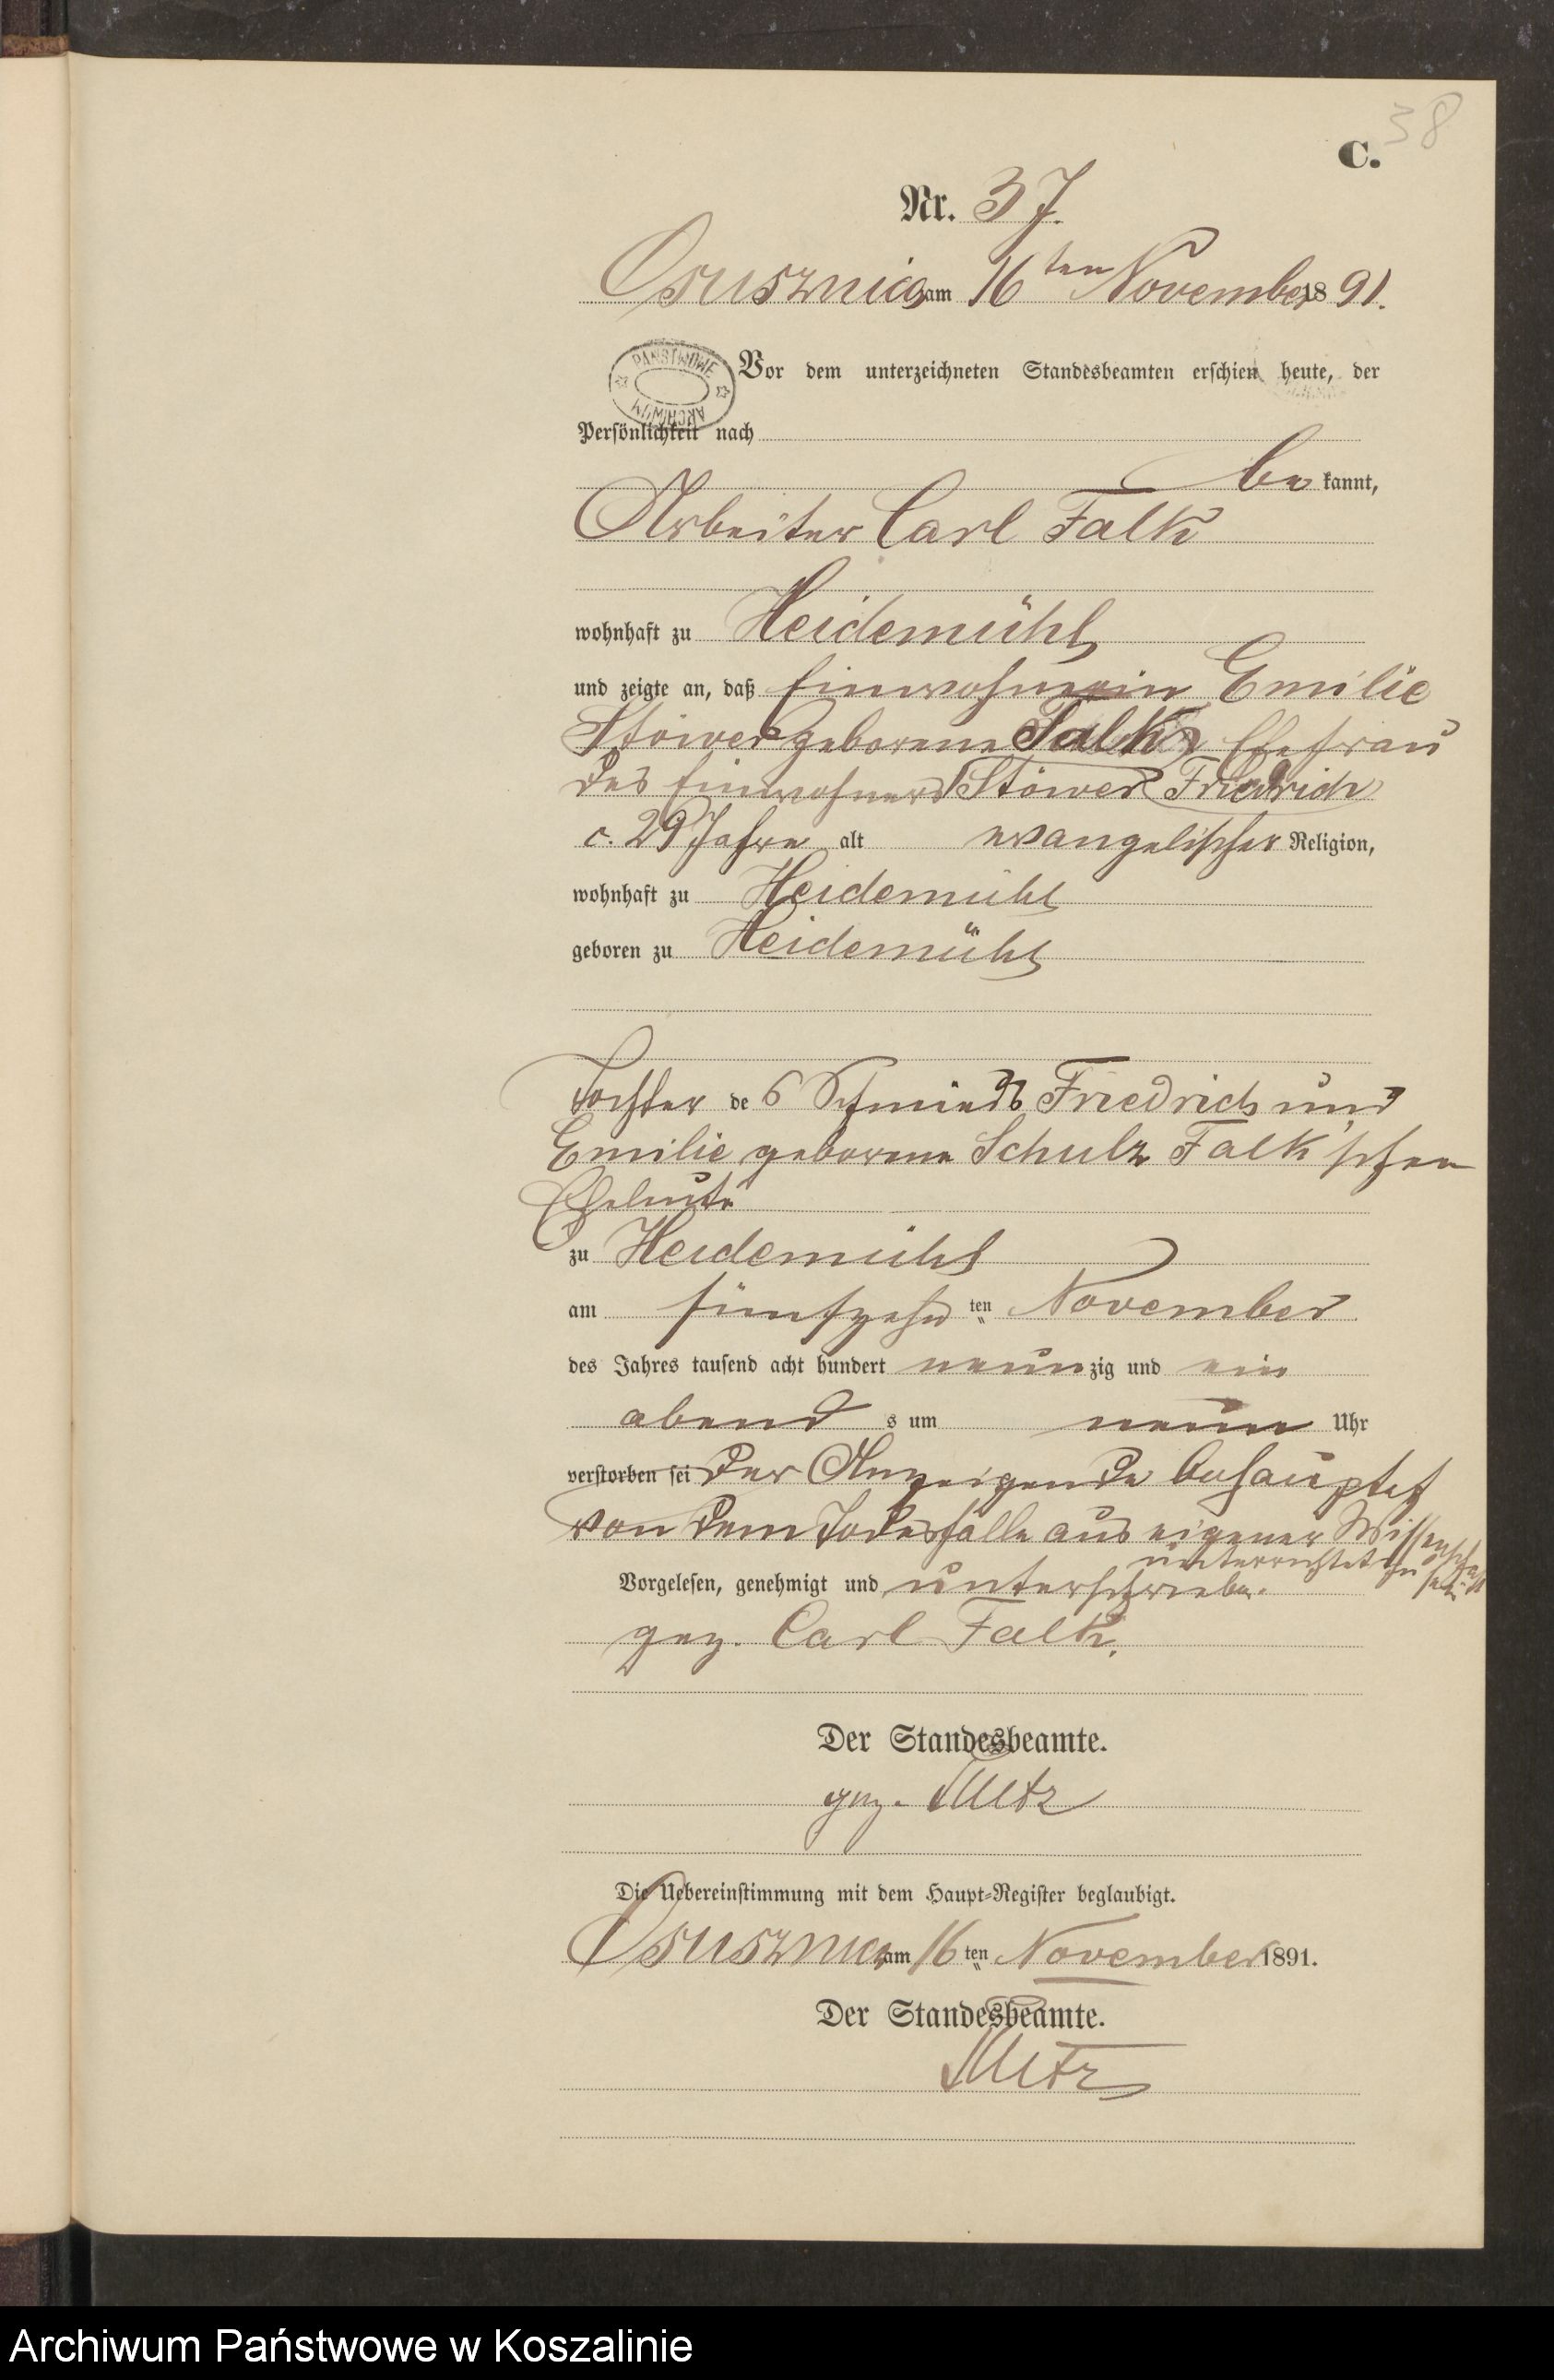 38
C.
Nr. 37.
Osusznica am 16ten November 1891.
PAŃSTWOWE ARCHIWUM
Vor dem unterzeichneten Standesbeamten erschien heute, der
Persönlichkeit nach
bekannt,
Arbeiter Carl Falk
wohnhaft zu Heidemühl
und zeigte an, daß Einwohnerin Emilie
Stöwer geborene Falk Ehefrau
des Einwohners Stöwer Friedrich
c. 29 Jahre alt evangelischer Religion,
wohnhaft zu Heidemühl
geboren zu Heidemühl
Tochter des Schmieds Friedrich und
Emilie geborene Schulz Falk'schen
Eheleute
zu Heidemühl
am fünfzehnten November
des Jahres tausend acht hundert neunzig und ein
abends um neun Uhr
verstorben sei Der Anzeigende behauptet
von dem Todesfalle aus eigener Wissenschaft
unterrichtet zu sein.
Vorgelesen, genehmigt und unterschrieben.
gez. Carl Falk.
Der Standesbeamte.
gez. Metz
Die Uebereinstimmung mit dem Haupt-Register beglaubigt.
Osusznica am 16ten November 1891.
Der Standesbeamte.
Metz
Archiwum Państwowe w Koszalinie